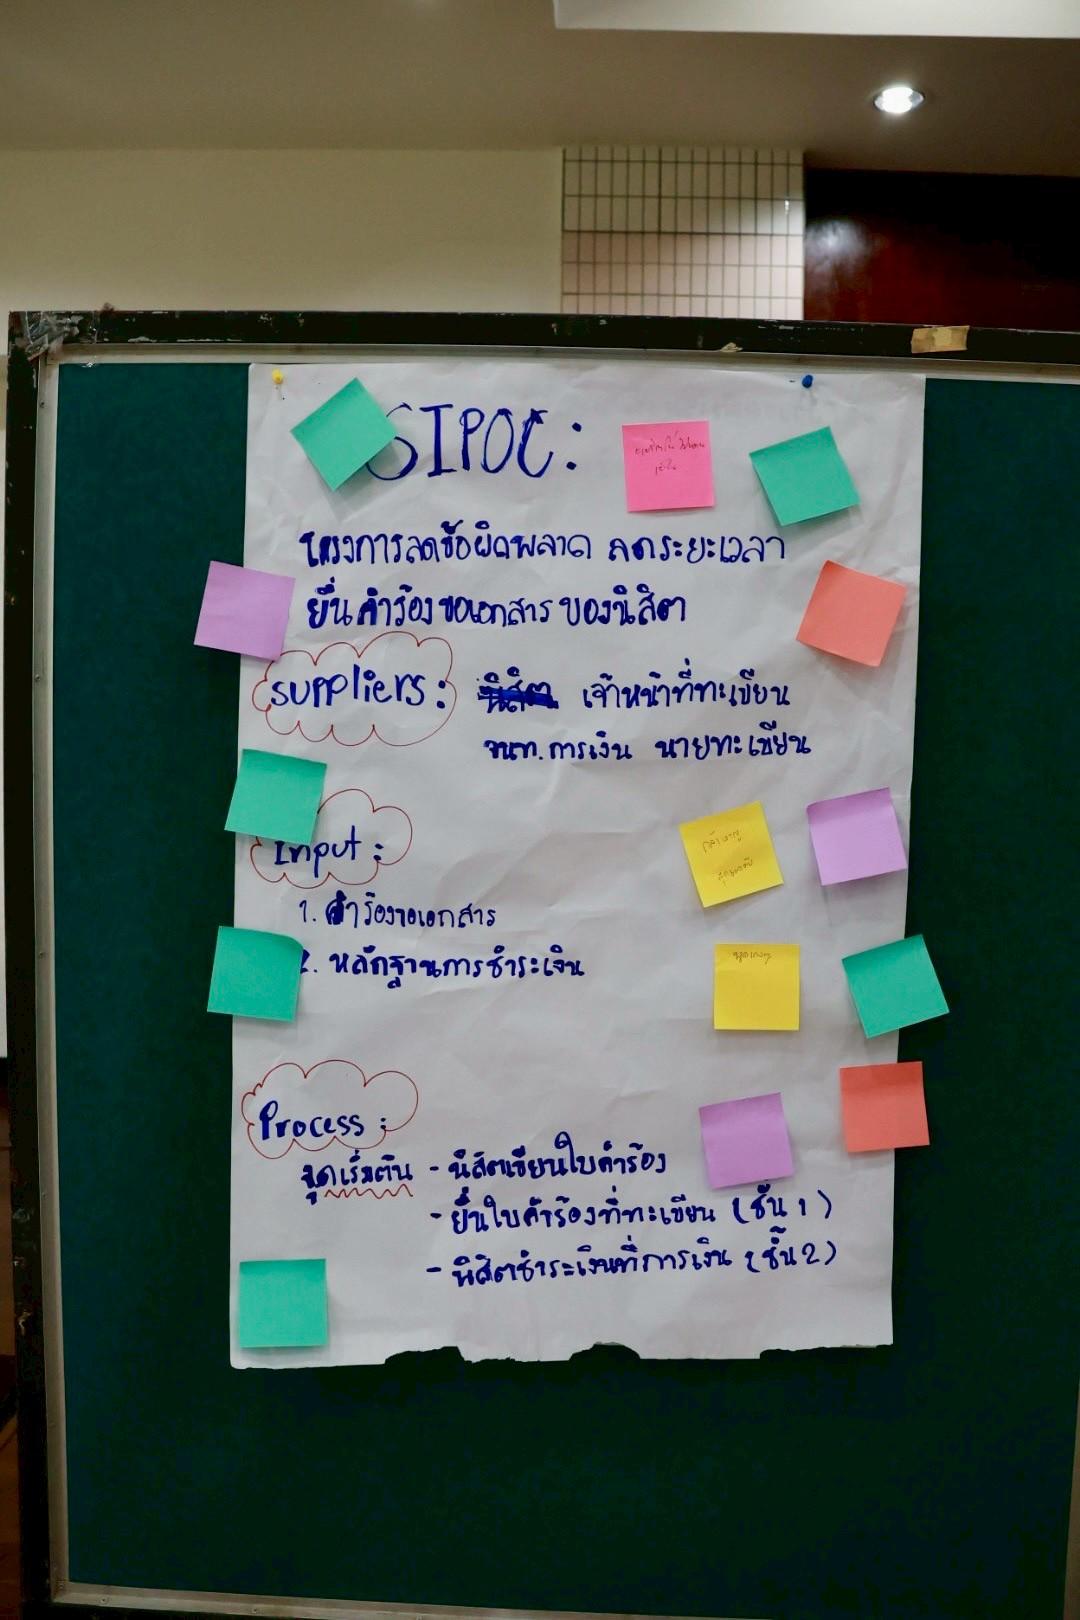 SIPOC:
โครงการลดข้อผิดพลาด ลดระยะเวลา
ยื่นคำร้องขอเอกสารของนิสิต
Suppliers: นิสิต เจ้าหน้าที่ทะเบียน
จนท.การเงิน นายทะเบียน
Input:
1. คำร้องขอเอกสาร
2. หลักฐานการชำระเงิน
Process:
จุดเริ่มต้น - นิสิตเขียนใบคำร้อง
- ยื่นใบคำร้องที่ทะเบียน (ชั้น 1)
- นิสิตชำระเงินที่การเงิน (ชั้น 2)